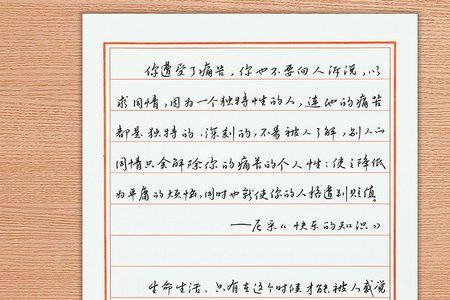 你遭受了痛苦，你也不要向人诉说，以
求同情，因为一个独特性的人，连他的痛苦
都是独特的、深刻的，不易被人了解，别人的
同情只会解除你的痛苦的个人性：使之降低
为平庸的烦恼，同时也就使你的人格遭到贬值。
——尼采《快乐的知识》
生命生活、只有在这个时候才能被人感悦